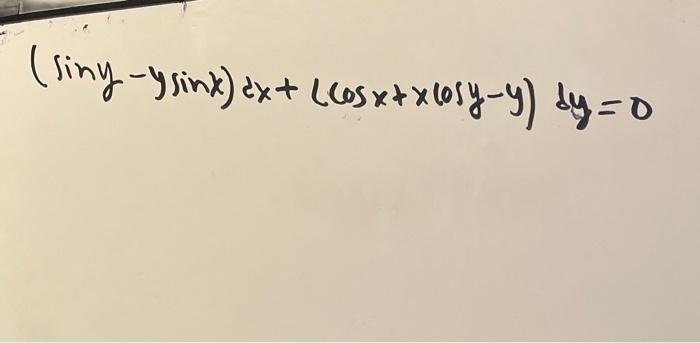 (siny-ysinx)dx+(cosx+xcosy-y) dy=0